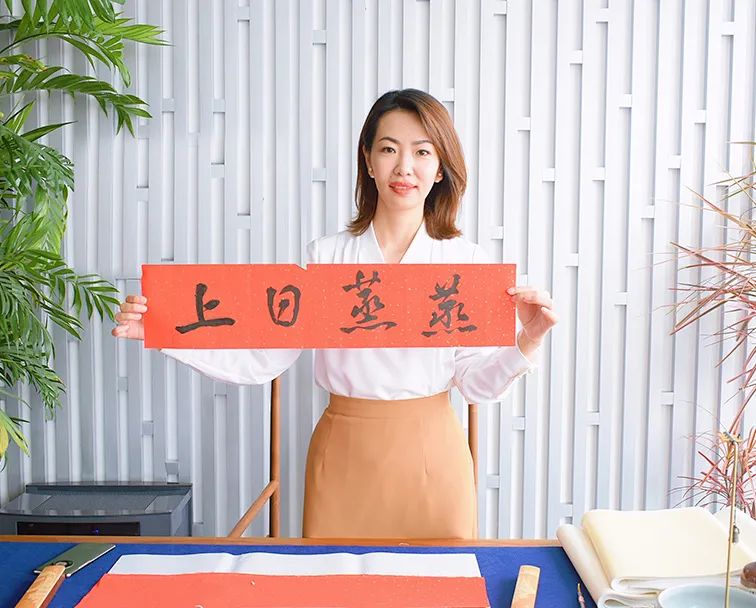 蒸蒸日上